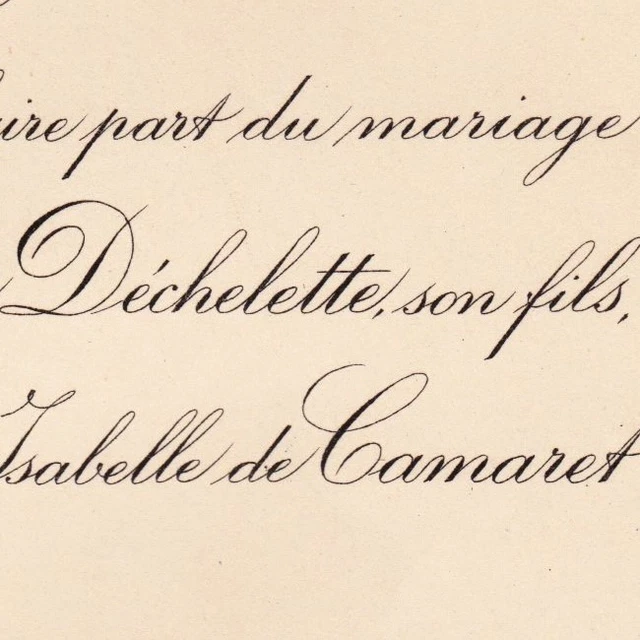 aire part du mariage
Déchelette, son fils,
Isabelle de Camaret